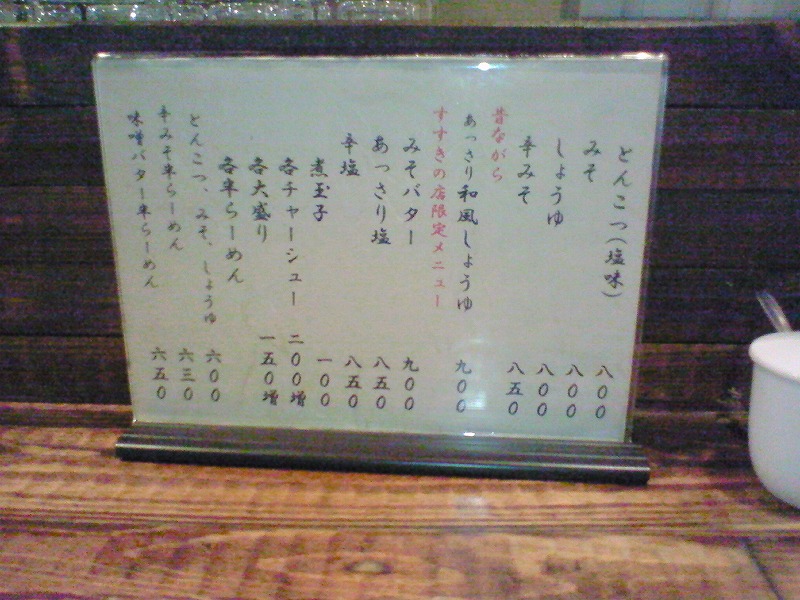 とんこつ(塩味) 八〇〇
みそ 八〇〇
しょうゆ 八〇〇
辛みそ 八五〇
昔ながら
あっさり和風しょうゆ 九〇〇
すすきの店限定メニュー
みそバター 九〇〇
あっさり塩 八五〇
辛塩 八五〇
煮玉子 一〇〇
各チャーシュー 二〇〇増
各大盛り 一五〇増
各半らーめん
とんこつ、みそ、しょうゆ 六〇〇
辛みそ半らーめん 六三〇
味噌バター半らーめん 六五〇